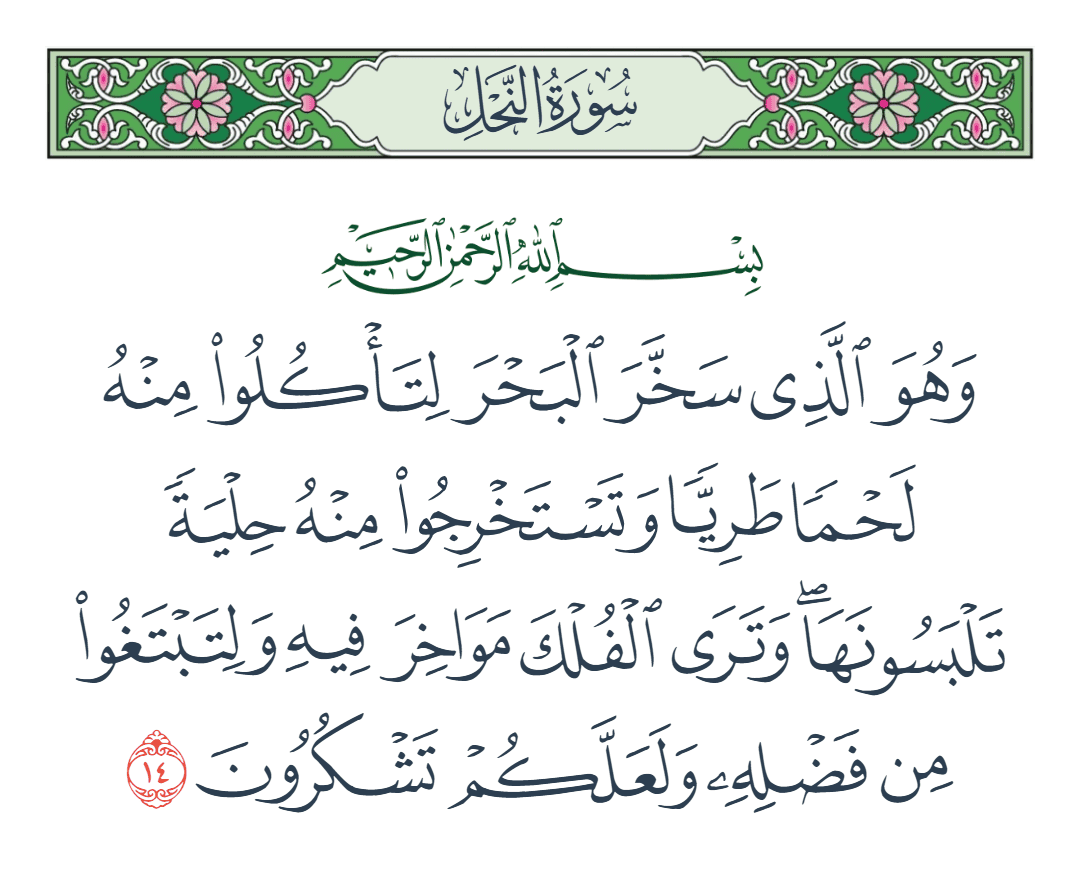 سُورَةُ النَّحْلِ
بِسْمِ ٱللَّهِ ٱلرَّحْمَٰنِ ٱلرَّحِيمِ
وَهُوَ ٱلَّذِى سَخَّرَ ٱلْبَحْرَ لِتَأْكُلُوا۟ مِنْهُ
لَحْمًا طَرِيًّا وَتَسْتَخْرِجُوا۟ مِنْهُ حِلْيَةً
تَلْبَسُونَهَا ۖ وَتَرَى ٱلْفُلْكَ مَوَاخِرَ فِيهِ وَلِتَبْتَغُوا۟
مِن فَضْلِهِۦ وَلَعَلَّكُمْ تَشْكُرُونَ ١٤